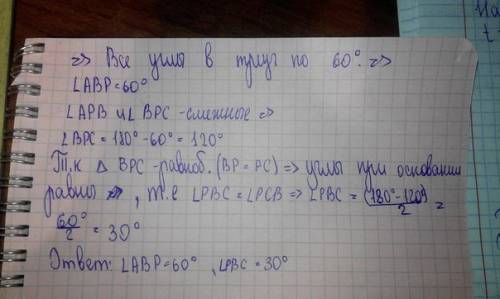 => Все углы в треуг по 60°. =>
∠ABP=60°
∠APB и ∠BPC - смежные =>
∠BPC = 180° - 60° = 120°
Т.к △ BPC - равноб. (BP = PC) => углы при основании
равны, т.е ∠PBC = ∠PCB => ∠PBC = (180° - 120°)/2 =
60°/2 = 30°
Ответ: ∠ABP = 60°, ∠PBC = 30°